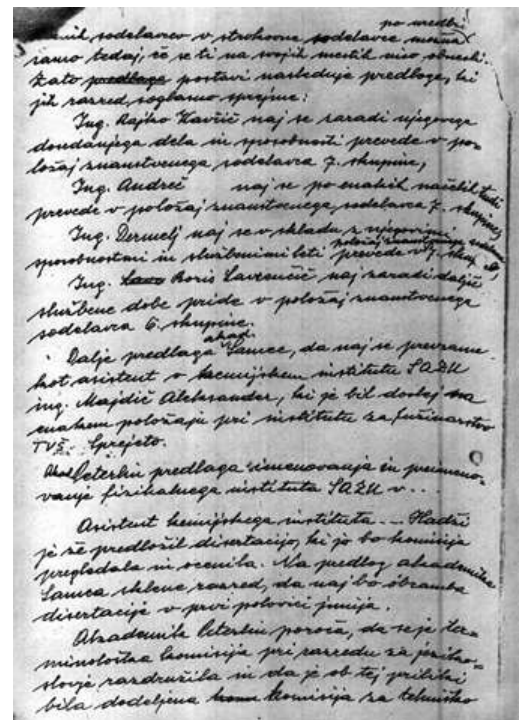 po uredbi
sodelavcev v strokovne sodelavce možna
samo tedaj, če se ti na svojih mestih niso obnesli.
Zato predlaga postavi naslednje predloge, ki
jih razred soglasno sprejme:
Ing. Rajko Kavčič naj se zaradi njegovega
dosedanjega dela in sposobnosti prevede v po-
ložaj znanstvenega sodelavca 7. skupine,
Ing. Andreč naj se po enakih načelih tudi
prevede v položaj znanstvenega sodelavca 7. skupine,
Ing. Dermelj naj se v skladu z njegovimi
sposobnostmi in službenimi leti prevede v položaj znanstvenega
Ing. Savo Boris Lavrenčič naj zaradi daljše
službene dobe pride v položaj znanstvenega
sodelavca 6. skupine.
Dalje predlaga akad. Samec, da naj se prevzame
kot asistent v kemijskem institutu SAZU
ing. Majdič Aleksander, ki je bil doslej na
enakem položaju pri institutu za fužinarstvo
TVŠ. Sprejeto.
Akad. Peterlin predlaga imenovanja in preimeno-
vanje fizikalnega instituta SAZU v ...
Asistent kemijskega instituta ... Hadži
je že predložil disertacijo, ki jo bo komisija
pregledala in ocenila. Na predlog akademika
Samca sklene razred, da naj bo obramba
disertacije v prvi polovici junija.
Akademik Peterlin poroča, da se je ter-
minološka komisija pri razredu za jeziko-
slovje razdružila in da je ob tej priliki
bila dodeljena komisija za tehniško